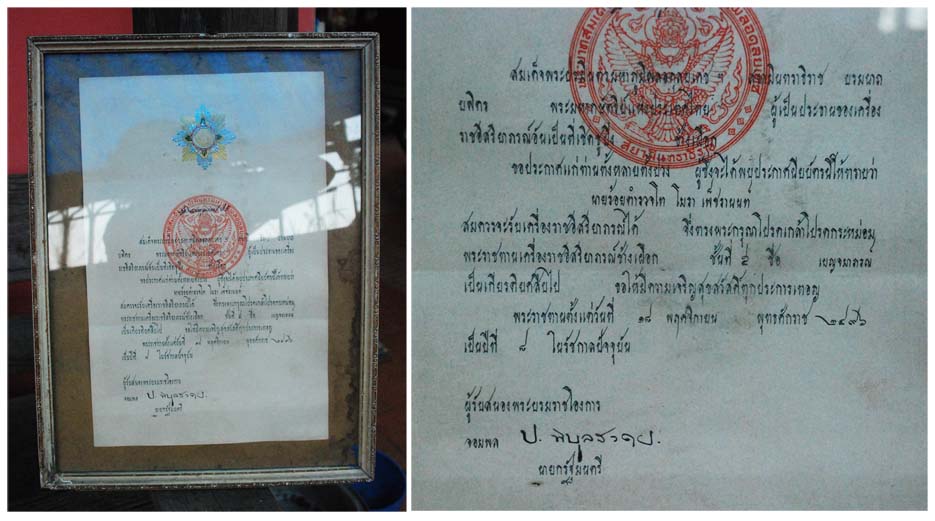 สมเด็จพระปรมินทรมหาภูมิพลอดุลยเดช ฯ สยามินทราธิราช บรมนาถ
บพิตร พระมหากษัตริย์แห่งประเทศไทย ผู้เป็นประธานของเครื่อง
ราชอิสริยาภรณ์อันเป็นที่เชิดชูยิ่ง ช้างเผือก
ขอประกาศแก่ท่านทั้งหลายทั้งปวง ผู้ซึ่งจะได้พบประกาศนียบัตรนี้ให้ทราบว่า
นายร้อยตำรวจโท โมรา เพ็ชรานนท์
สมควรจะรับเครื่องราชอิสริยาภรณ์ได้ จึ่งทรงพระกรุณาโปรดเกล้าโปรดกระหม่อม
พระราชทานเครื่องราชอิสริยาภรณ์ช้างเผือก ชั้นที่ ๕ ชื่อ เบญจมาภรณ์
เป็นเกียรติยศสืบไป ขอให้มีความเจริญสุขสวัสดิ์ทุกประการเทอญ
พระราชทานตั้งแต่วันที่ ๑๘ พฤศจิกายน พุทธศักราช ๒๔๙๖
เป็นปีที่ ๘ ในรัชกาลปัจจุบัน
ผู้รับสนองพระบรมราชโองการ
จอมพล ป. พิบูลสงคราม
นายกรัฐมนตรี